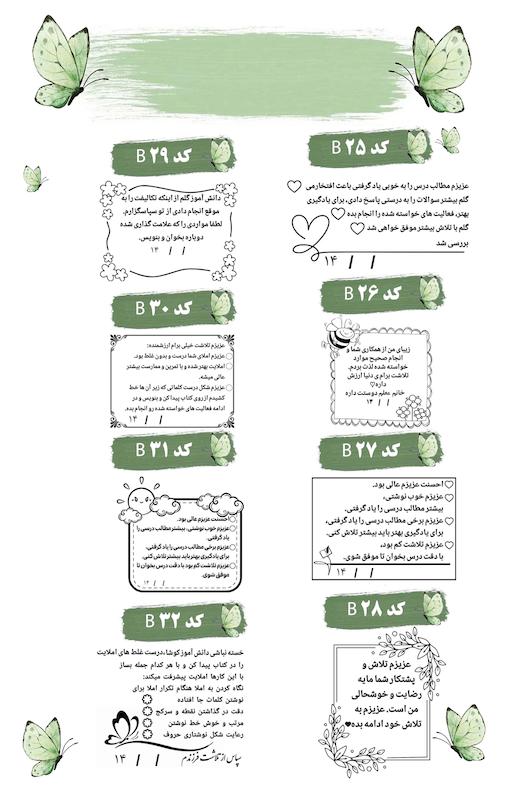 کد B ۲۵
عزیزم مطالب درس را به خوبی یاد گرفتی باعث افتخارمی
گلم بیشتر سوالات را به درستی پاسخ دادی، برای یادگیری
بهتر، فعالیت های خواسته شده را انجام بده
گلم با تلاش بیشتر موفق خواهی شد
بررسی شد
۱۴ / /
کد B ۲۶
زیبای من از همکاری شما و
انجام صحیح موارد
خواسته شده لذت بردم.
تلاشت برام ی دنیا ارزش
داره
خانم معلم دوستت داره
۱۴ / /
کد B ۲۷
احسنت عزیزم عالی بود.
عزیزم خوب نوشتی،
بیشتر مطالب درسی را یاد گرفتی.
عزیزم برخی مطالب درسی را یاد گرفتی،
برای یادگیری بهتر باید بیشتر تلاش کنی.
عزیزم تلاشت کم بود،
با دقت درس بخوان تا موفق شوی.
۱۴ / /
کد B ۲۸
عزیزم تلاش و
پشتکار شما مایه
رضایت و خوشحالی
من است. عزیزم به
تلاش خود ادامه بده
کد B ۲۹
دانش آموز گلم از اینکه تکالیفت را به
موقع انجام دادی از تو سپاسگزارم.
لطفا مواردی را که علامت گذاری شده
دوباره بخوان و بنویس.
۱۴ / /
کد B ۳۰
عزیزم تلاشت خیلی برام ارزشمنده:
عزیزم املای شما درست و بدون غلط بود.
املایت بهتر شده و با تمرین و ممارست بیشتر
عالی میشه.
عزیزم شکل درست کلماتی که زیر آن ها خط
کشیدم از روی کتاب پیدا کن و بنویس و در
ادامه فعالیت های خواسته شده رو انجام بده.
۱۴ / /
کد B ۳۱
احسنت عزیزم عالی بود.
عزیزم خوب نوشتی، بیشتر مطالب درسی را
یاد گرفتی.
عزیزم برخی مطالب درسی را یاد گرفتی،
برای یادگیری بهتر باید بیشتر تلاش کنی.
عزیزم تلاشت کم بود با دقت درس بخوان تا
موفق شوی.
۱۴ / /
کد B ۳۲
خسته نباشی دانش آموز کوشا،درست غلط های املایت
را در کتاب پیدا کن و با هر کدام جمله بساز
با این کارها املایت پیشرفت میکند:
نگاه کردن به املا هنگام تکرار املا برای
نوشتن کلمات جا افتاده
دقت در گذاشتن نقطه و سرکج
مرتب و خوش خط نوشتن
رعایت شکل نوشتاری حروف
سپاس از تلاشت فرزندم
۱۴ / /